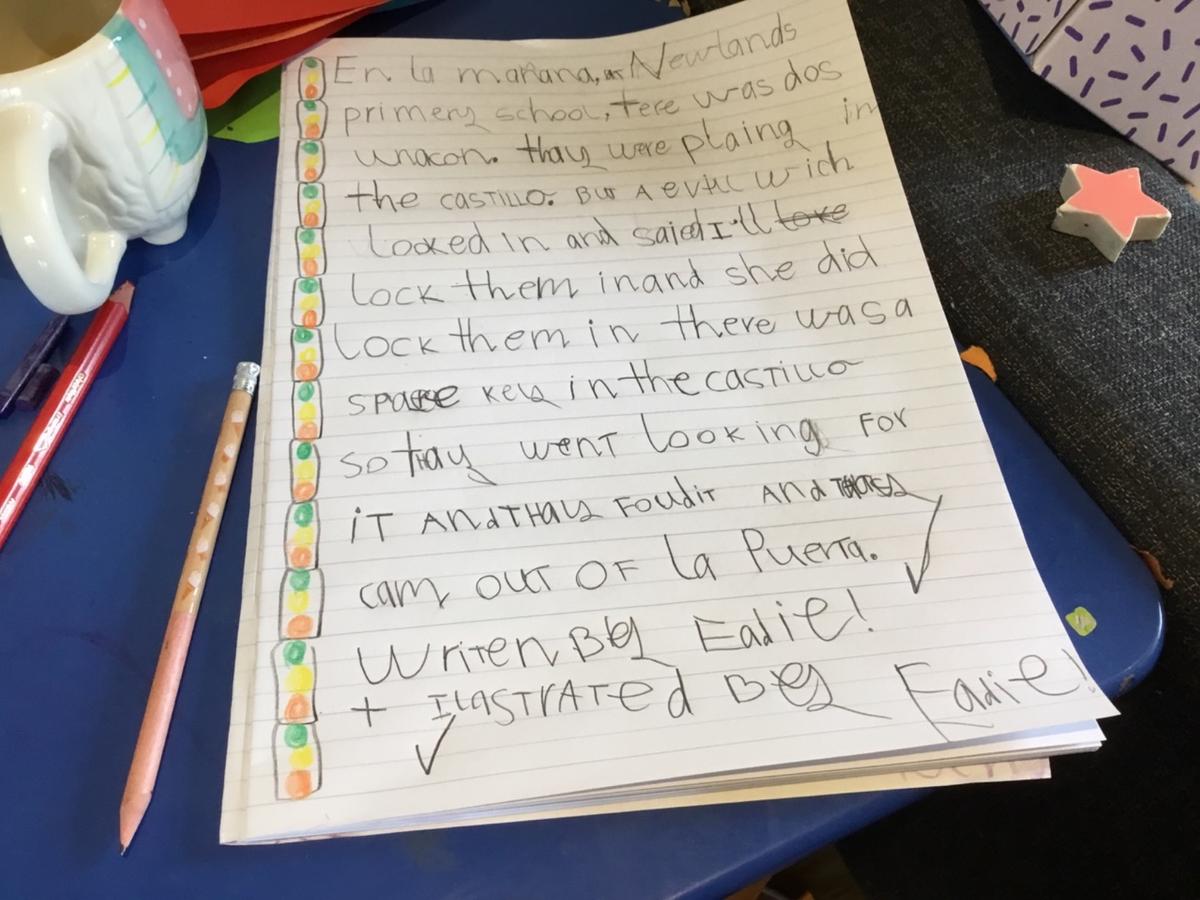 En la mañana, at Newlands
primery school, tere was dos
unacon. thay were plaing in
the castillo. But A evil wich
looked in and saied I'll loke
lock them in and she did
lock them in there was a
spare key in the castillo
so thay went looking for
it And thay foudit And
cam out of la Puerta.
Writen By Eadie!
+ Ilastrated By Eadie!